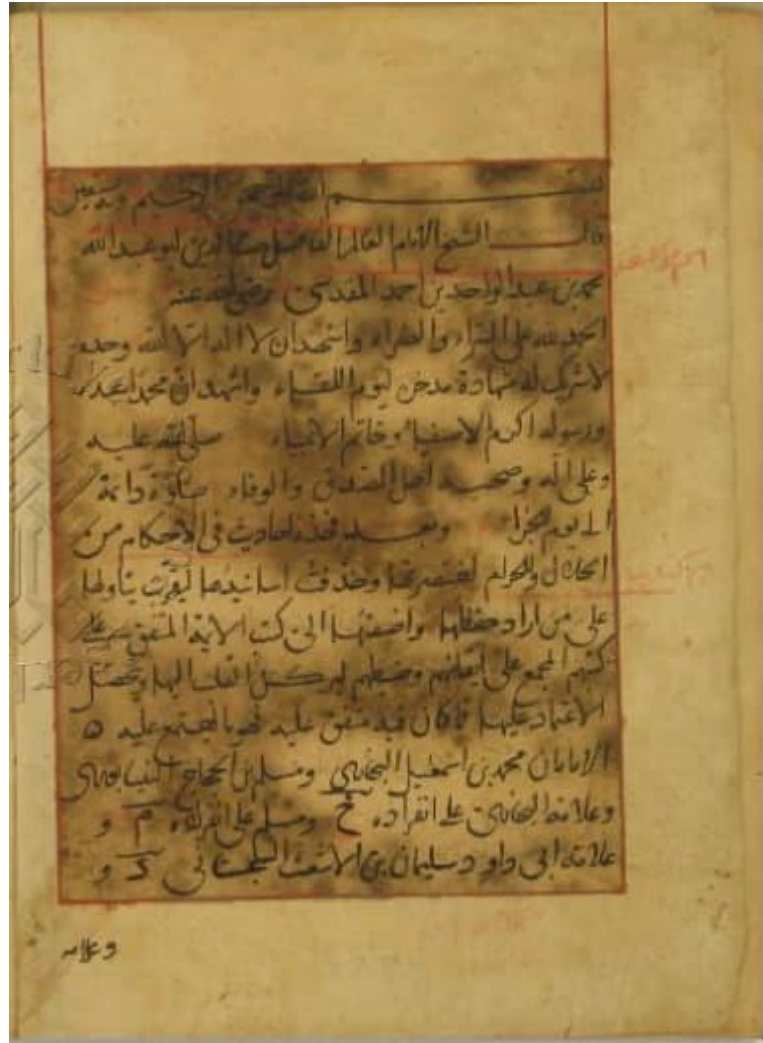 بسم الله الرحمن الرحيم وبه نستعين
قال الشيخ الامام العالم الفاضل ضيا الدين ابو عبد الله
محمد بن عبد الواحد بن احمد المقدسي رضي الله عنه
الحمد لله على السراء والضراء واشهد ان لا اله الا الله وحده
لا شريك له شهادة مدخن ليوم اللقاء واشهد ان محمدا عبده
ورسوله اكرم الاصفياء وخاتم الانبياء صلى الله عليه
وعلى اله وصحبه اهل الصدق والوفاء صلوة دائمة
الى يوم الجزا وبعد فهذه احاديث في الاحكام من
الحلال والحرام اختصرتها وحذفت اسانيدها ليقرب تناولها
على من اراد حفظها واضفتها الى كتب الايمة المتفق على
كتبهم المجمع على اتقانهم وضبطهم ليركن القلب اليها ويحصل
الاعتماد عليها فما كان فيه متفق عليه فهو ما اجتمع عليه ٥
الامامان محمد بن اسمعيل البخاري ومسلم بن الحجاج النيسابوري
وعلامة البخاري على انفراده خ ومسلم على انفراده م و
علامة ابي داود سليمان بن الاشعث السجستاني د و
وعلامه